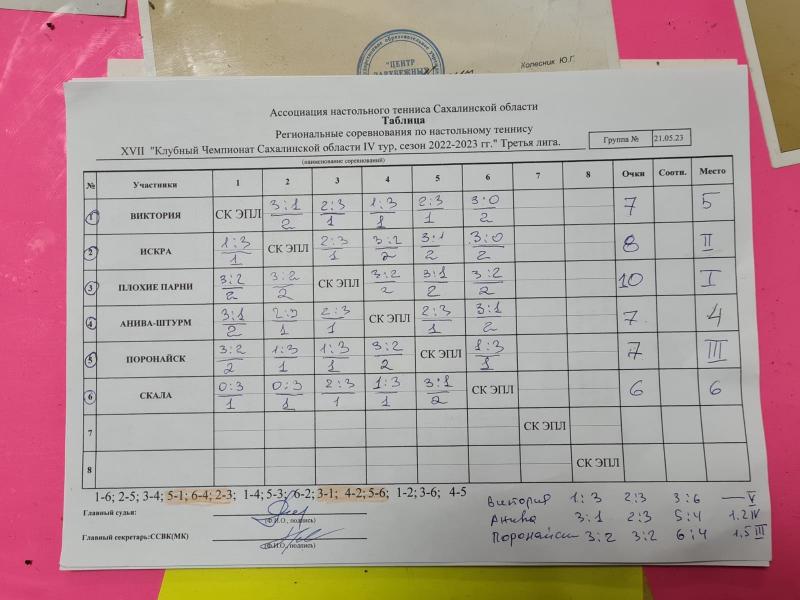 "ЦЕНТР
ЗАРУБЕЖНЫХ
Колесник Ю.Г.
Ассоциация настольного тенниса Сахалинской области
Таблица
Региональные соревнования по настольному теннису
XVII "Клубный Чемпионат Сахалинской области IV тур, сезон 2022-2023 гг." Третья лига.
Группа № 21.05.23
(наименование соревнований)
№ Участники 1 2 3 4 5 6 7 8 Очки Соотн. Место
1 ВИКТОРИЯ СК ЭПЛ 3:1 2:3 1:3 2:3 3:0 7 5
2 1 1 1 2
2 ИСКРА 1:3 СК ЭПЛ 2:3 3:2 3:1 3:0 8 II
1 1 2 2 2
3 ПЛОХИЕ ПАРНИ 3:2 3:2 СК ЭПЛ 3:2 3:1 3:2 10 I
2 2 2 2 2
4 АНИВА-ШТУРМ 3:1 2:3 2:3 СК ЭПЛ 2:3 3:1 7 4
2 1 1 1 2
5 ПОРОНАЙСК 3:2 1:3 1:3 3:2 СК ЭПЛ 1:3 7 III
2 1 1 2 1
6 СКАЛА 0:3 0:3 2:3 1:3 3:1 СК ЭПЛ 6 6
1 1 1 1 2
7 СК ЭПЛ
8 СК ЭПЛ
1-6; 2-5; 3-4; 5-1; 6-4; 2-3; 1-4; 5-3; 6-2; 3-1; 4-2; 5-6; 1-2; 3-6; 4-5
Главный судья:
(Ф.И.О., подпись)
Главный секретарь:ССВК(МК)
(Ф.И.О., подпись)
Виктория 1:3 2:3 3:6 — V
Анива 3:1 2:3 5:4 1.2 IV
Поронайск 3:2 3:2 6:4 1,5 III